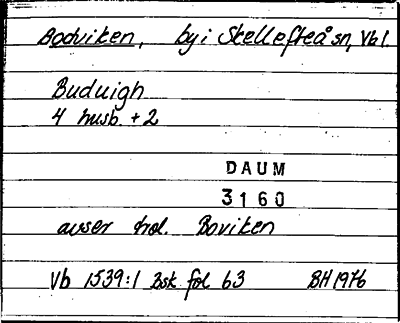 Bodviken, by i Skellefteå sn, Vbl.
Buduigh
4 husb. + 2
DAUM
3160
avser trol. Boviken
Vb 1539:1 Bsk fol 63 BH 1976